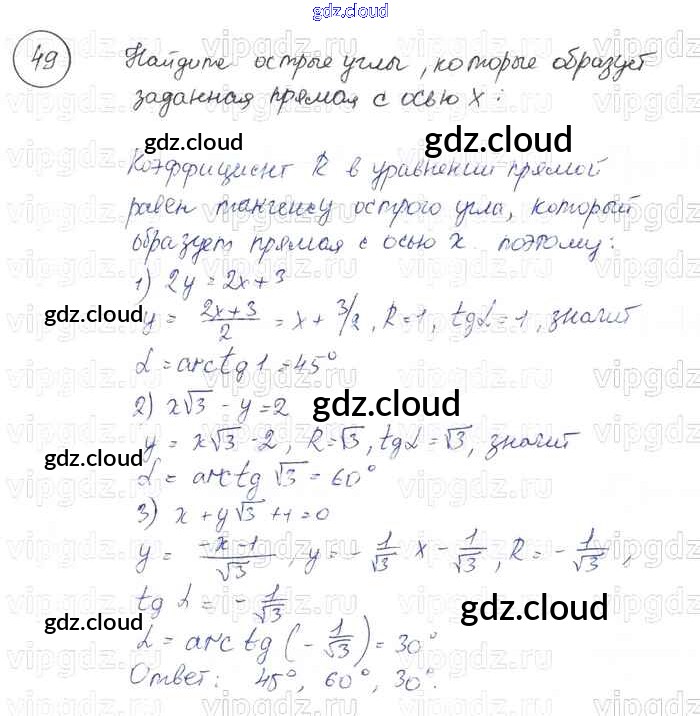 gdz.cloud
49
Найдите острые углы, которые образует
заданная прямая с осью x:
gdz.cloud gdz.cloud
Коэффициент R в уравнении прямой
равен тангенсу острого угла, который
образует прямая с осью x. поэтому:
1) 2y = 2x+3
gdz.cloud gdz.cloud
y = (2x+3)/2 = x + 3/2, R=1, tgα=1, значит
α = arctg 1 = 45°
2) x√3 - y = 2 gdz.cloud
y = x√3 - 2, R=√3, tgα=√3, значит
gdz.cloud
α = arctg √3 = 60°
3) x + y√3 + 1 = 0
y = (-x-1)/√3, y = -1/√3 x - 1/√3, R = -1/√3,
tg α = -1/√3
gdz.cloud gdz.cloud
α = arctg (-1/√3) = 30°
Ответ: 45°, 60°, 30°.